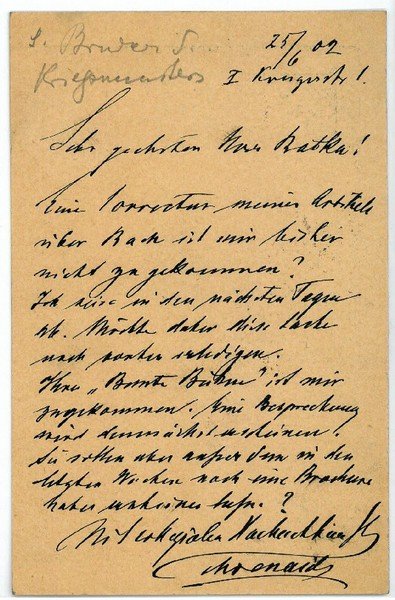 s. Bruders
Kriegsministers
25/6 02
I Krugerstr 1.
Sehr geehrter Herr Batka!
Eine Correctur meines Artikels
über Bach ist mir bisher
nicht zugekommen?
Ich reise in den nächsten Tagen
ab. Möchte daher diese Sache
noch vorher erledigen.
Ihre „Bunte Bühne" ist mir
zugekommen. Eine Besprechung
wird demnächst erscheinen.
Sie sollen aber außerdem in den
letzten Wochen noch eine Brochure
haben erscheinen lassen?
Mit collegialer Hochachtung